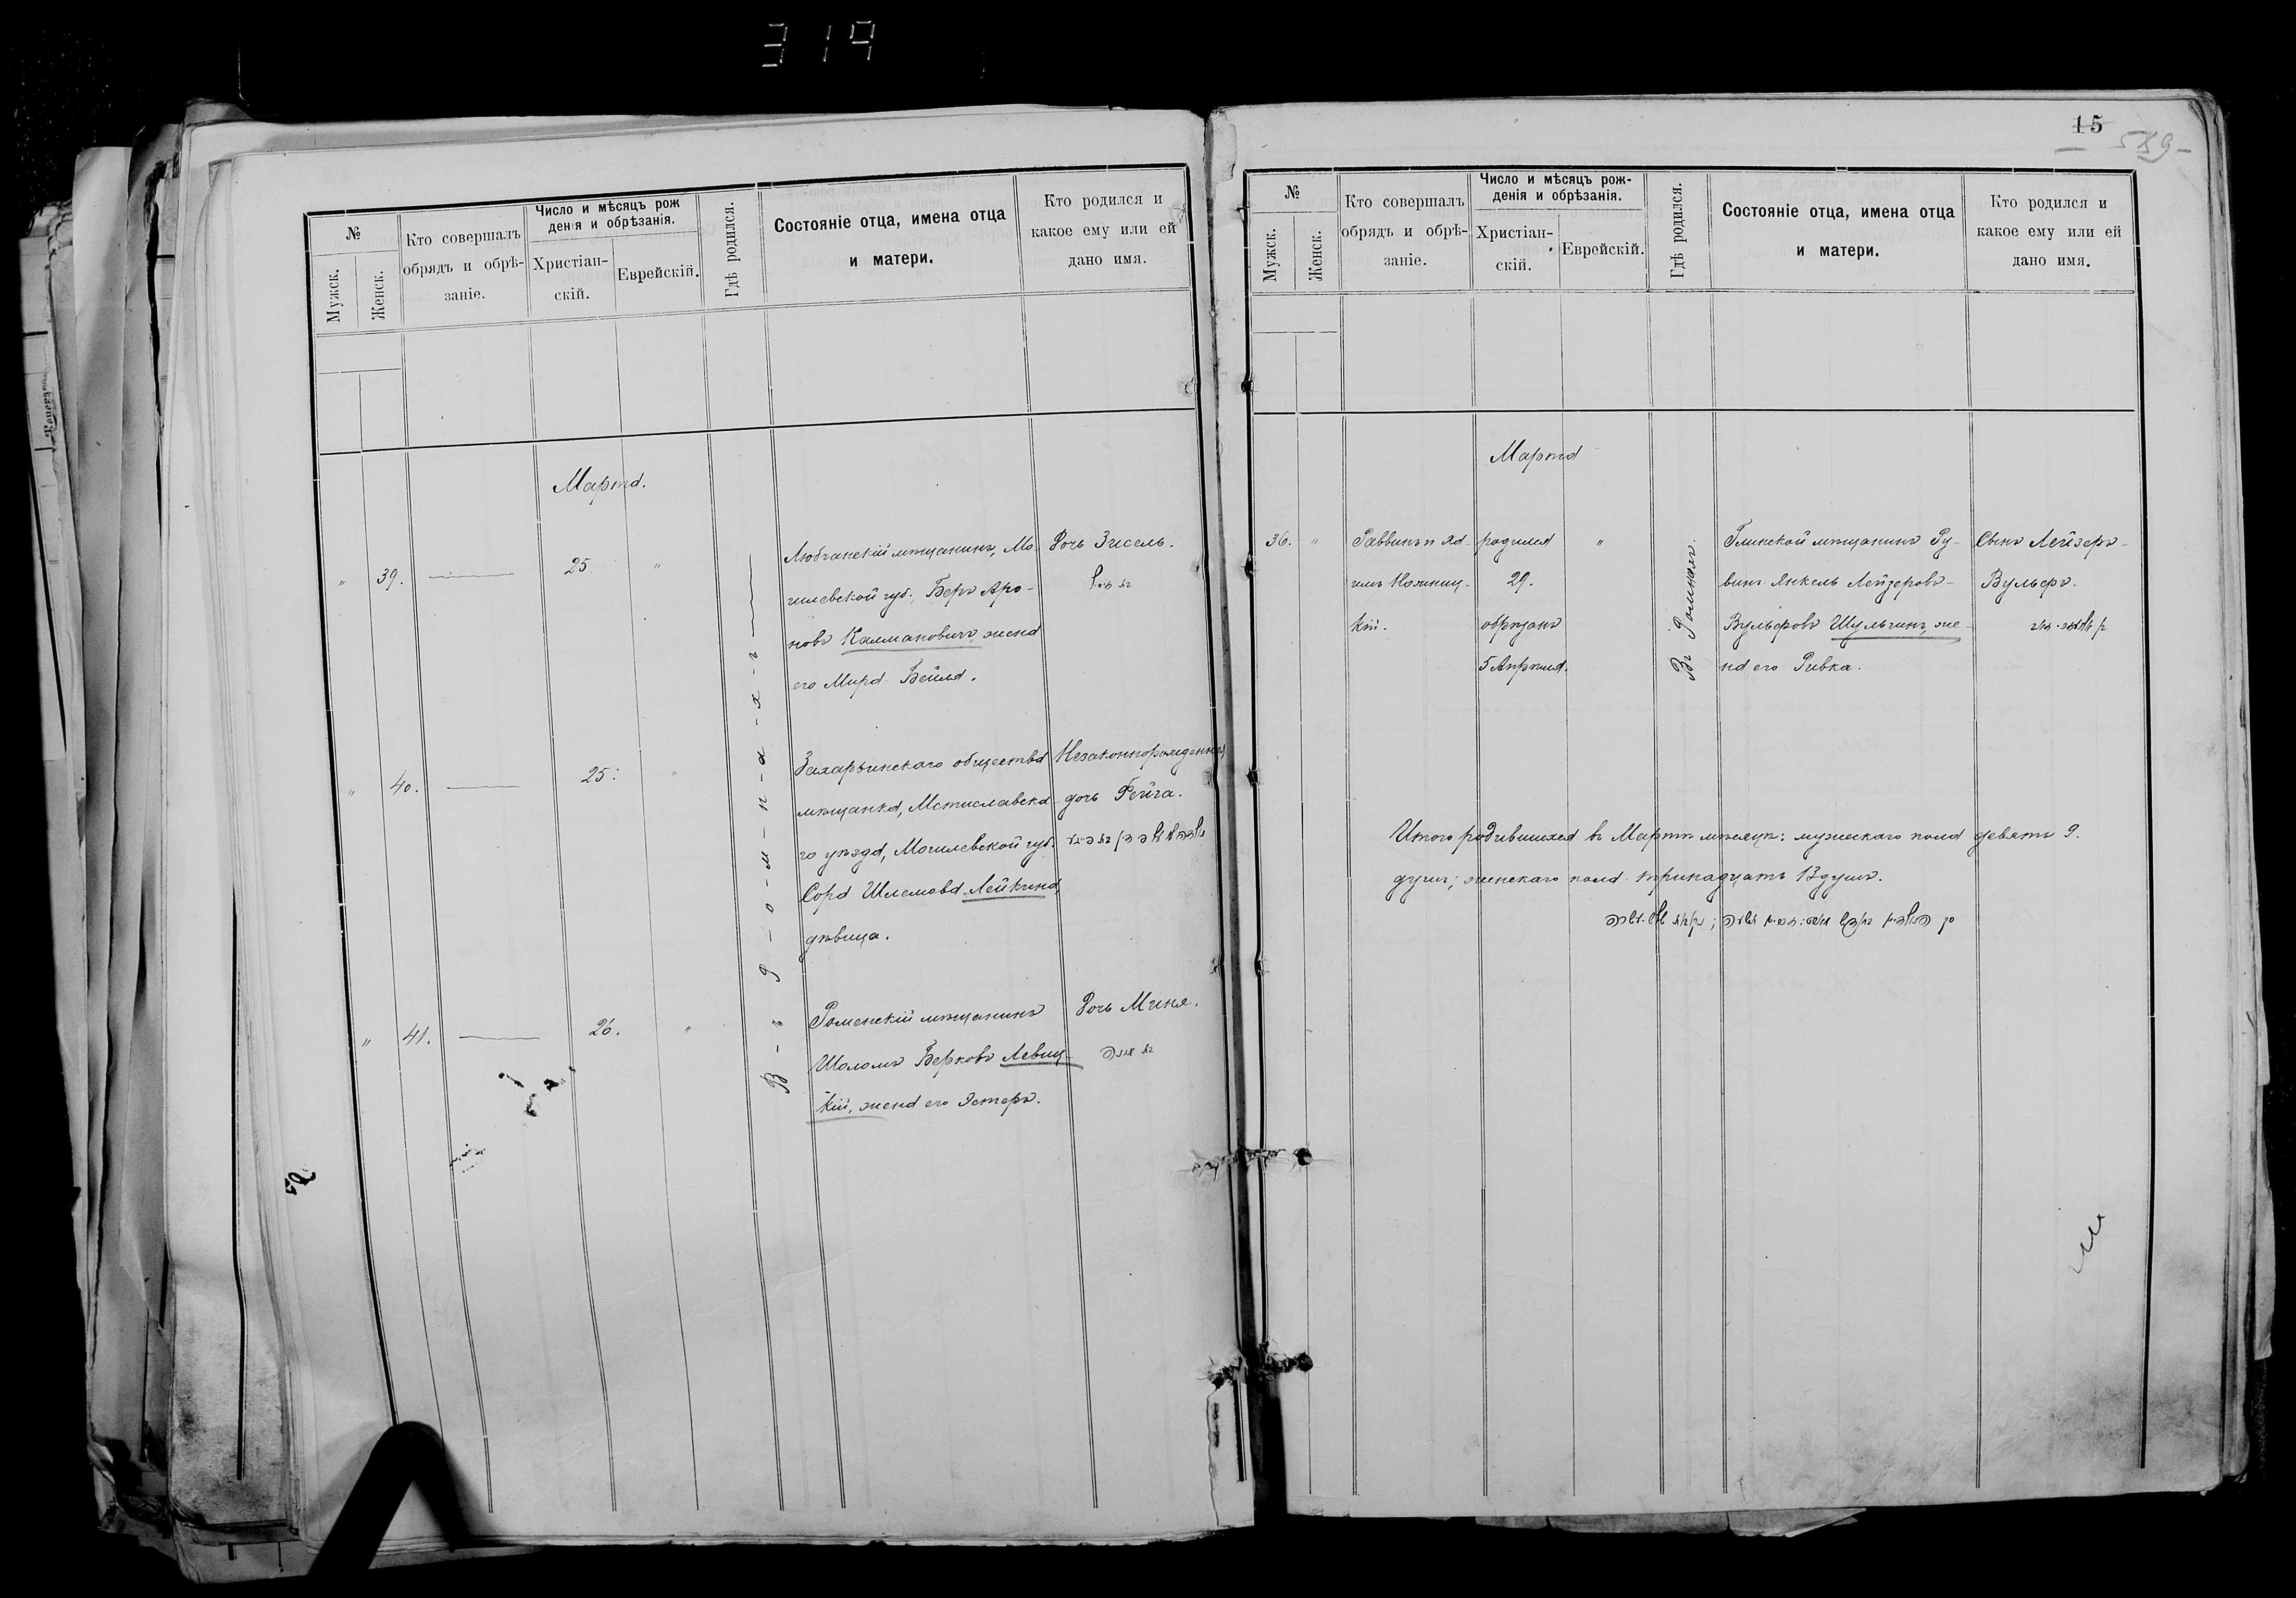 319
№
Мужск.
Женск.
Кто совершалъ
обрядъ и обрѣ-
заніе.
Число и мѣсяцъ рож
денія и обрѣзанія.
Христіан-
скій.
Еврейскій.
Гдѣ родился.
Состояніе отца, имена отца
и матери.
Кто родился и
какое ему или ей
дано имя.
Марта.
" 39. 25 "
Любчанскій мѣщанинъ, Мо
гилевской губ., Беръ Аро-
новъ Калмановичъ, жена
его Мира Бейла.
Дочь Зисель.
" 40. 25.
Захарьинскаго общества
мѣщанка, Мстиславска-
го уѣзда, Могилевской губ.
Сора Шлемова Лейкина,
дѣвица.
Незаконнорожденная
дочь Рейза.
" 41. 26. "
Роменскій мѣщанинъ
Шоломъ Берковъ Левиц-
кій, жена его Эстеръ.
Дочь Миня.
В-ъ Р-о-м-н-а-х-ъ
15
589-
№
Мужск.
Женск.
Кто совершалъ
обрядъ и обрѣ-
заніе.
Число и мѣсяцъ рож-
денія и обрѣзанія.
Христіан-
скій.
Еврейскій.
Гдѣ родился.
Состояніе отца, имена отца
и матери.
Кто родился и
какое ему или ей
дано имя.
Марта
36. "
Раввинъ
кій.
родился
29.
обрѣзанъ
5 Апрѣля.
"
Въ Ромнахъ.
Глинской мѣщанинъ Ру-
винъ-Янкель Лейзеровъ-
Вульфовъ Шульгинъ, же-
на его Ривка.
Сынъ Лейзеръ-
Вульфъ.
Итого родившихся въ Мартѣ мѣсяцѣ: мужескаго пола девять 9.
душъ; женскаго пола тринадцать 13 душъ.